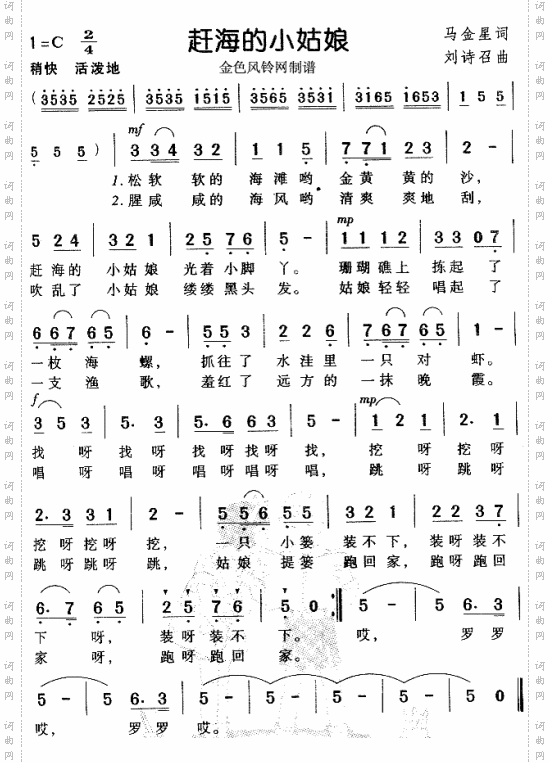 1=C 2/4 赶海的小姑娘 马金星词
稍快 活泼地 金色风铃网制谱 刘诗召曲
( 3535 2525 | 3535 1515 | 3565 3531 | 3165 1653 | 1 5 5 |
mf
5 5 5 ) | 3 3 4 3 2 | 1 1 5 | 7 7 1 2 3 | 2 - |
1.松软 软的 海滩哟, 金黄 黄的 沙,
2.腥咸 咸的 海风哟, 清爽 爽地 刮,
mp
5 2 4 | 3 2 1 | 2 5 7 6 | 5 - | 1 1 1 2 | 3 3 0 7 |
赶 海的 小姑娘 光着小脚 丫。 珊瑚礁上 拣起 了
吹 乱了 小姑娘 缕缕黑头 发。 姑娘轻轻 唱起 了
6 6 7 6 5 | 6 - | 5 5 3 | 2 2 6 | 7 6 7 6 5 | 1 - |
一枚 海 螺, 抓往了 水洼里 一只 对 虾。
一支 渔 歌, 羞红了 远方的 一抹 晚 霞。
f mp
3 5 3 | 5. 3 | 5. 6 6 3 | 5 - | 1 2 1 | 2. 1 |
找 呀 找 呀 找呀找呀 找, 挖 呀 挖 呀
唱 呀 唱 呀 唱呀唱呀 唱, 跳 呀 跳 呀
2. 3 3 1 | 2 - | 5 5 6 5 | 3 2 1 | 2 2 3 7 |
挖呀挖呀 挖, 一只 小篓 装不下, 装呀装不
跳呀跳呀 跳, 姑娘 提篓 跑回家, 跑呀跑回
6. 7 6 5 | 2 5 7 6 | 5 0 :| 5 - | 5 - | 6. 3 |
下 呀, 装呀装不 下。 哎, 罗罗
家 呀, 跑呀跑回 家。
5 - | 5 - | 6. 3 | 5 - | 5 - | 5 - | 5 0 ‖
哎, 罗罗 哎。
词曲网